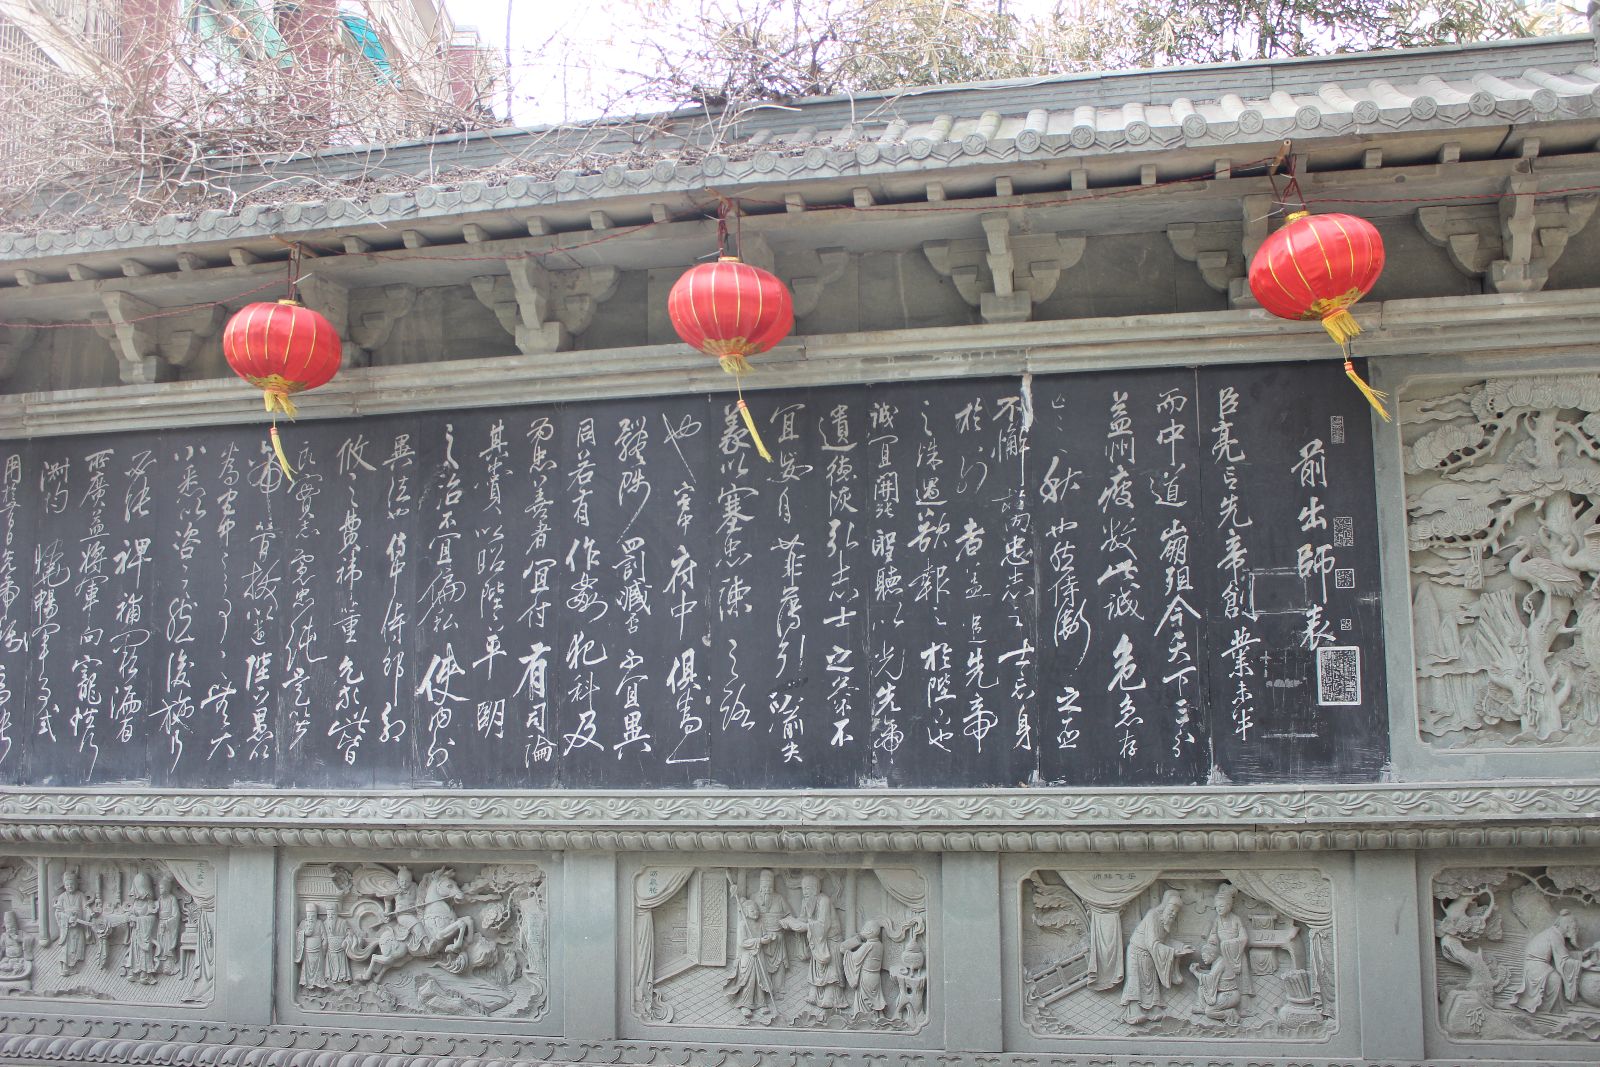 前出師表
臣亮言先帝創業未半
而中道崩殂今天下三分
益州疲敝此誠危急存
亡之秋也然侍衛之臣
不懈於內忠志之士忘身
於外者蓋追先帝
之殊遇欲報之於陛下也
誠宜開張聖聽以光先帝
遺德恢弘志士之氣不
宜妄自菲薄引喻失
義以塞忠諫之路
也宮中府中俱為一
體陟罰臧否不宜異
同若有作姦犯科及
為忠善者宜付有司論
其刑賞以昭陛下平明
之治不宜偏私使內外
異法也侍中侍郎郭
攸之費禕董允等此皆
良實志慮忠純是以
先帝簡拔以遺陛下愚以
為宮中之事事無大
小悉以咨之然後施行
必能裨補闕漏有
所廣益將軍向寵性行
淑均曉暢軍事試
用於昔日先帝稱
岳飞拜師